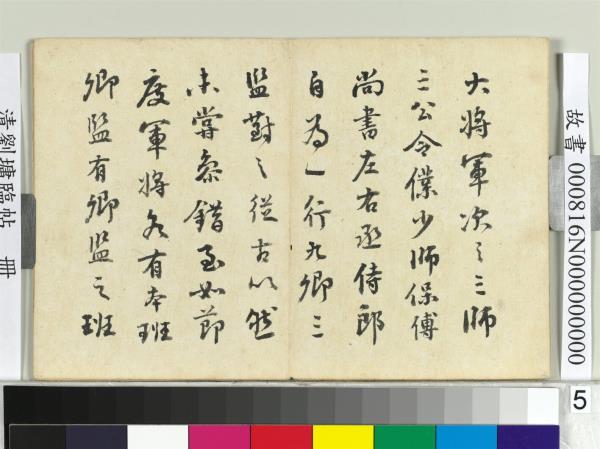 大將軍次之三師
三公令僕少師保傅
尚書左右丞侍郎
自為一行九卿三
監對之從古以然
未嘗參錯至如節
度軍將各有本班
卿監有卿監之班
故書 000816N000000000
清劉墉臨帖 冊
5